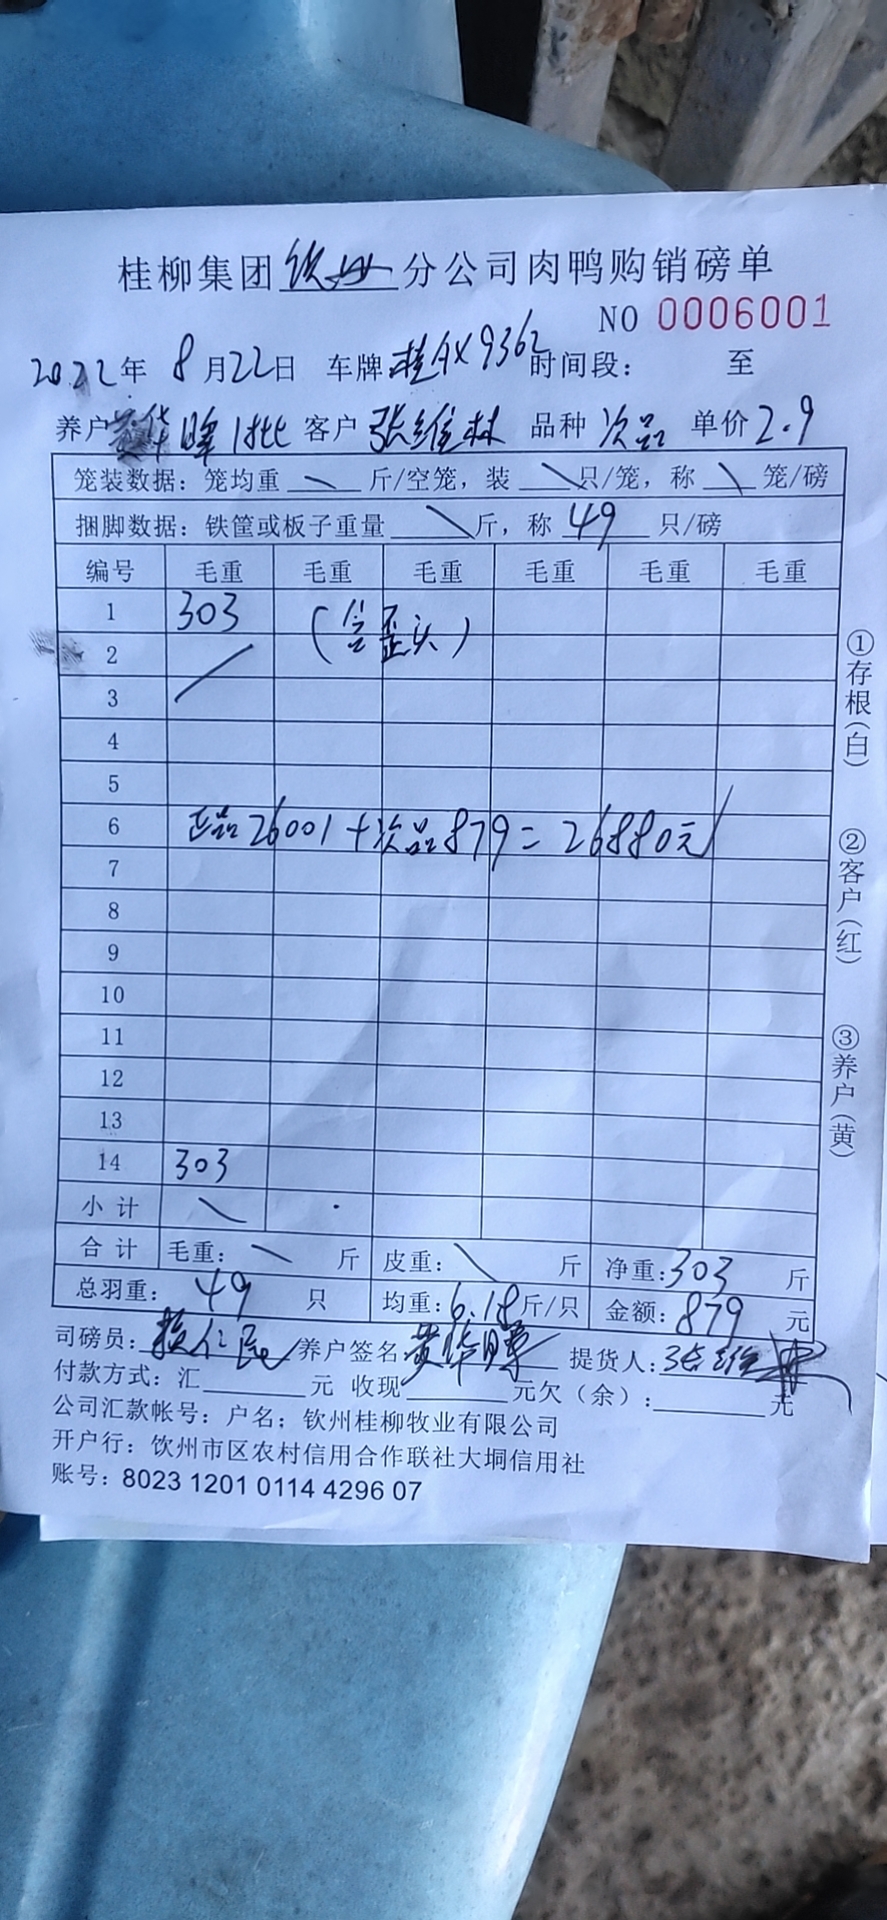 桂柳集团钦州分公司肉鸭购销磅单
NO 0006001
2022年 8月22日 车牌 桂AX9362 时间段： 至
养户 黄华暲 1批 客户 张维林 品种 次品 单价 2.9
笼装数据：笼均重 \ 斤/空笼，装 \ 只/笼，称 \ 笼/磅
捆脚数据：铁筐或板子重量 \ 斤，称 49 只/磅
编号 毛重 毛重 毛重 毛重 毛重 毛重
1 303 （含歪头）
2
3
4
5
6 正品26001+次品879=26880元
7
8
9
10
11
12
13
14 303
小计 \
合计 毛重： \ 斤 皮重： \ 斤 净重：303 斤
总羽重： 49 只 均重：6.18斤/只 金额：879 元
司磅员： 养户签名：黄华暲 提货人：张维
付款方式：汇 元 收现 元欠（余）： 元
公司汇款帐号：户名：钦州桂柳牧业有限公司
开户行：钦州市区农村信用合作联社大垌信用社
账号：8023 1201 0114 4296 07
①存根（白） ②客户（红） ③养户（黄）